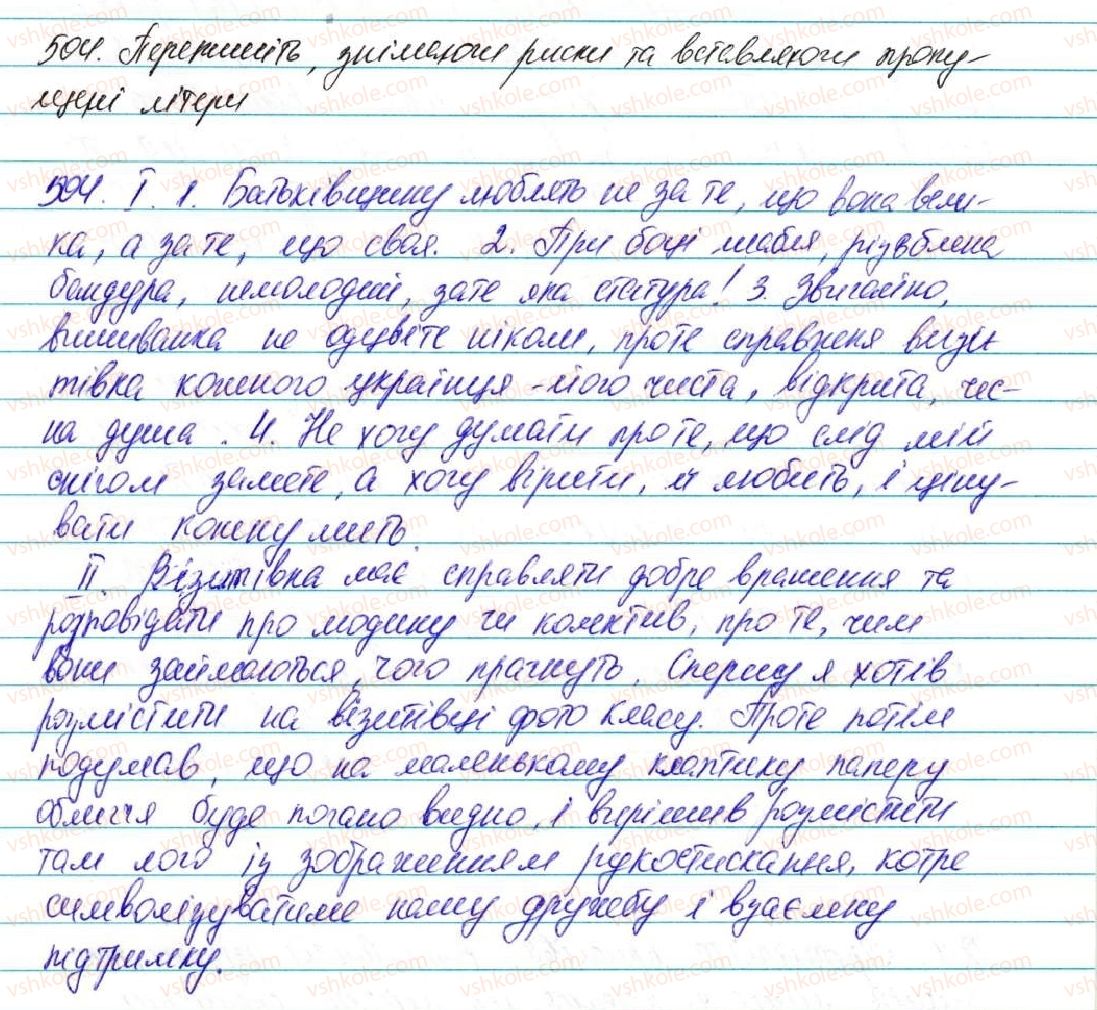 504. Перепишіть, знімаючи риски та вставляючи пропу-
щені літери
504. І. 1. Батьківщину люблять не за те, що вона вели-
ка, а за те, що своя. 2. При боці шабля, різьблена
бандура, немолодий, зате яка статура! 3. Звичайно,
вишиванка не одцвіте ніколи, проте справжня візи
тівка кожного українця - його чиста, відкрита, чес-
на душа. 4. Не хочу думати про те, що слід мій
снігом замете, а хочу вірити, й любить, і ціну-
вати кожну мить.
ІІ. Візитівка має справляти добре враження та
розповідати про людину чи колектив, про те, чим
вони займаються, чого прагнуть. Спершу я хотів
розмістити на візитівці фото класу. Проте потім
подумав, що на маленькому клаптику паперу
обличчя буде погано видно, і вирішив розмістити
там лого із зображенням рукостискання, котре
символізуватиме нашу дружбу і взаємну
підтримку.